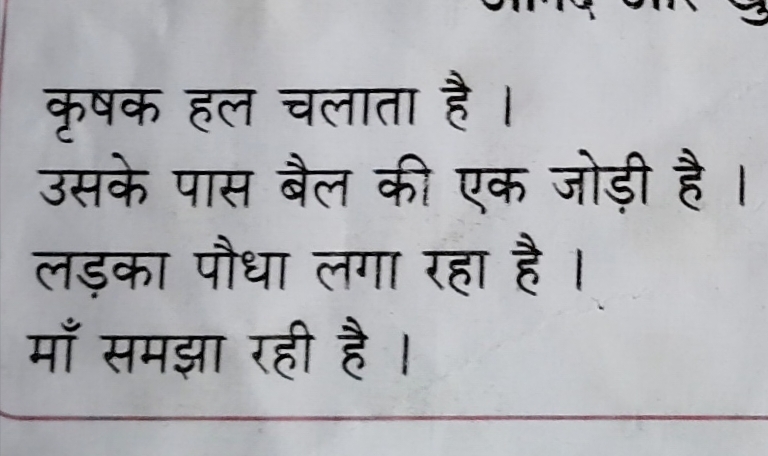 कृषक हल चलाता है ।
उसके पास बैल की एक जोड़ी है ।
लड़का पौधा लगा रहा है ।
माँ समझा रही है ।